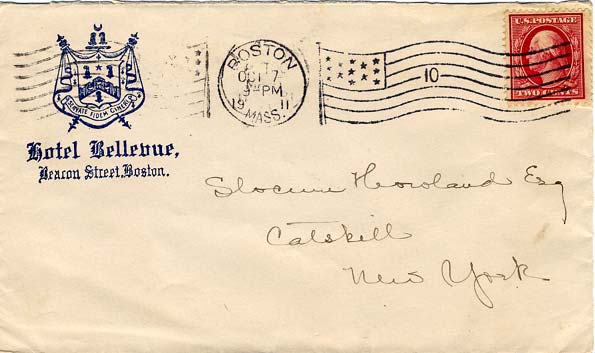 SERVATE FIDEM CINERI
Hotel Bellevue,
Beacon Street, Boston.
BOSTON
OCT 7
9 PM
19 11
MASS.
10
U.S. POSTAGE
TWO CENTS
Slocum Howland Esq
Catskill
New York